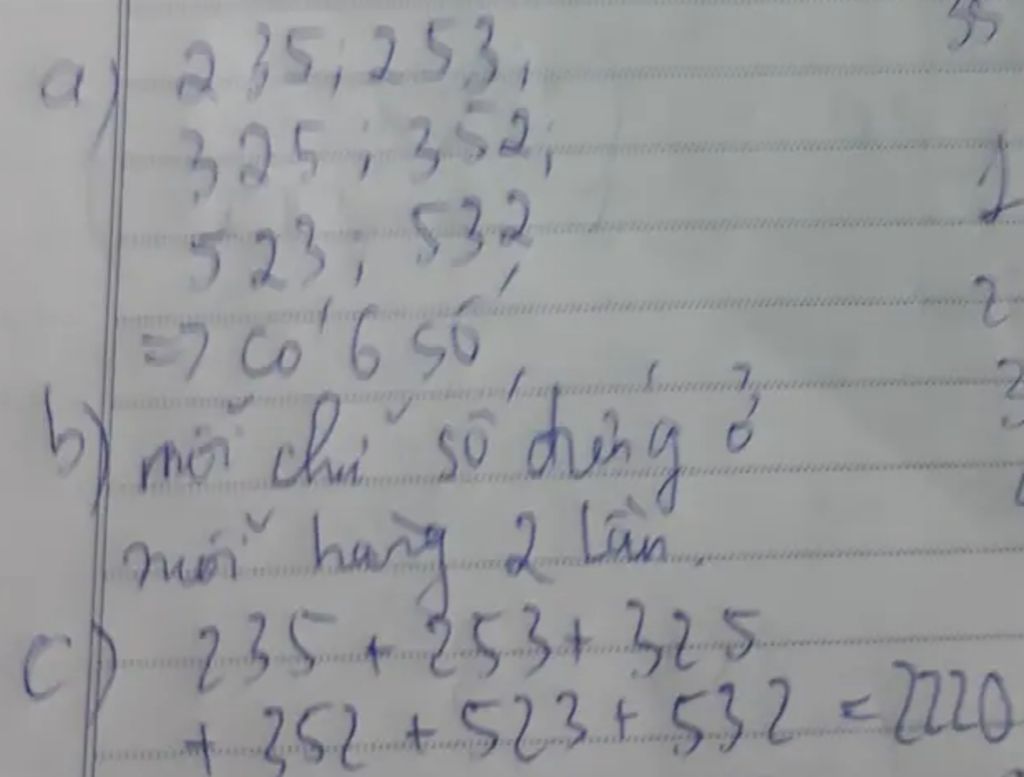 a) 235; 253;
325; 352;
523; 532
=> có 6 số
b) mỗi chữ số đứng ở
mỗi hàng 2 lần.
c) 235 + 253 + 325
+ 352 + 523 + 532 = 2220
35
1
2
3